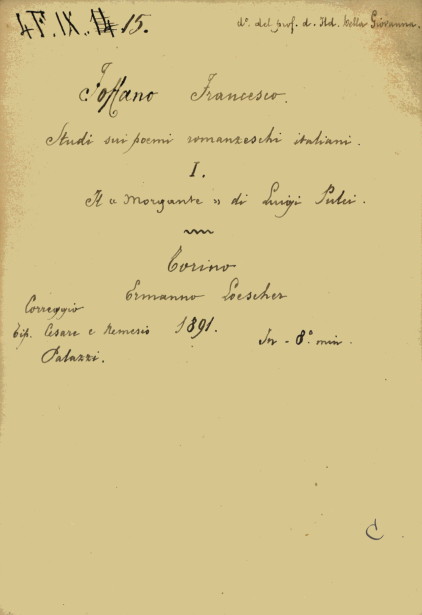 4F.IX.14 15.
d°. del prof. d. Ild. Della Giovanna.
Foffano Francesco.
Studi sui poemi romanzeschi italiani.
I.
Il « Morgante » di Luigi Pulci.
Torino
Ermanno Loescher
1891.
Correggio
Tip. Cesare e Remesio
Palazzi.
In - 8° min.
C